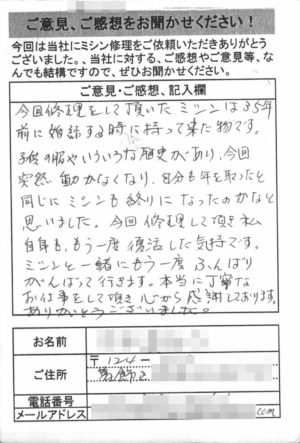 ご意見、ご感想をお聞かせください!
今回は当社にミシン修理をご依頼いただきありがとう
ございました。、当社に対する、ご感想やご意見等、な
んでも結構ですので、ぜひお聞かせください。
ご意見・ご感想、記入欄
今回修理をして頂いたミシンは35年
前に結婚する時に持って来た物です。
子供の服やいろいろな歴史があり、今回
突然動かなくなり、自分も年を取ったと
同じにミシンも終りになったのかなと
思いました。今回修理して頂き私
自身も、もう一度復活した気持です。
ミシンと一緒にもう一度ふんばり
がんばって行きます。本当に丁寧な
お仕事をして頂き心から感謝しております。
ありがとうございました。
お名前
ご住所
〒124-
葛飾区
電話番号
メールアドレス
com